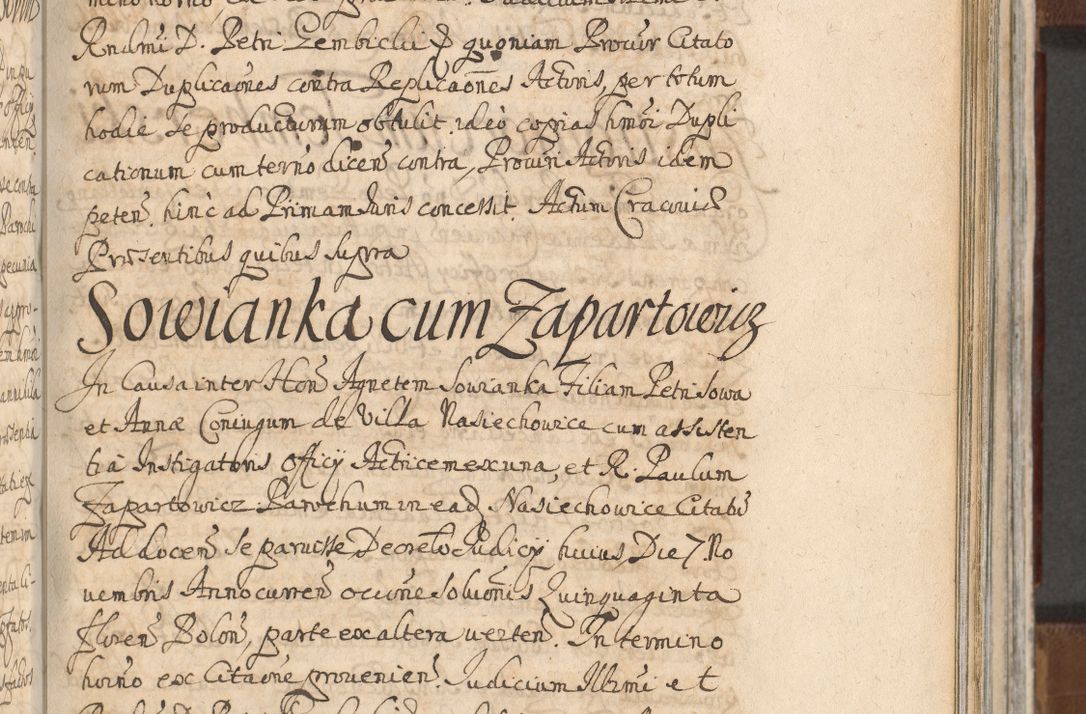 Rndmi D. Petri Gembicki et quoniam Procur Citato
rum Duplicaones contra Replicaones Actoris, per totum
hodie se producturum obtulit. ideo copias hmoi Dupli
cationum cum termo dicen contra, Procuri Actoris idem
peten. hinc ad Primam Juris concessit. Actum Cracoviæ
Præsentibus quibus supra
Sowianka cum Zapartowicz
In Causa inter Hons Agnetem Sowianka Filiam Petri Sowa
et Annæ Coniugum de Villa Nasiechowice cum assisten
tia Instigatoris officij Actricem ex una, et R. Paulum
Zapartowicz Parochum in ead Nasiechowice Citatu
Ad docen se paruisse Decreto Judicij huius, Die 7 No
uembris Anno curren occone solutionis Quinquaginta
floren Polon, parte ex altera uerten. In termino
horno ex Citaone prouenien. Judicium Illrmi et